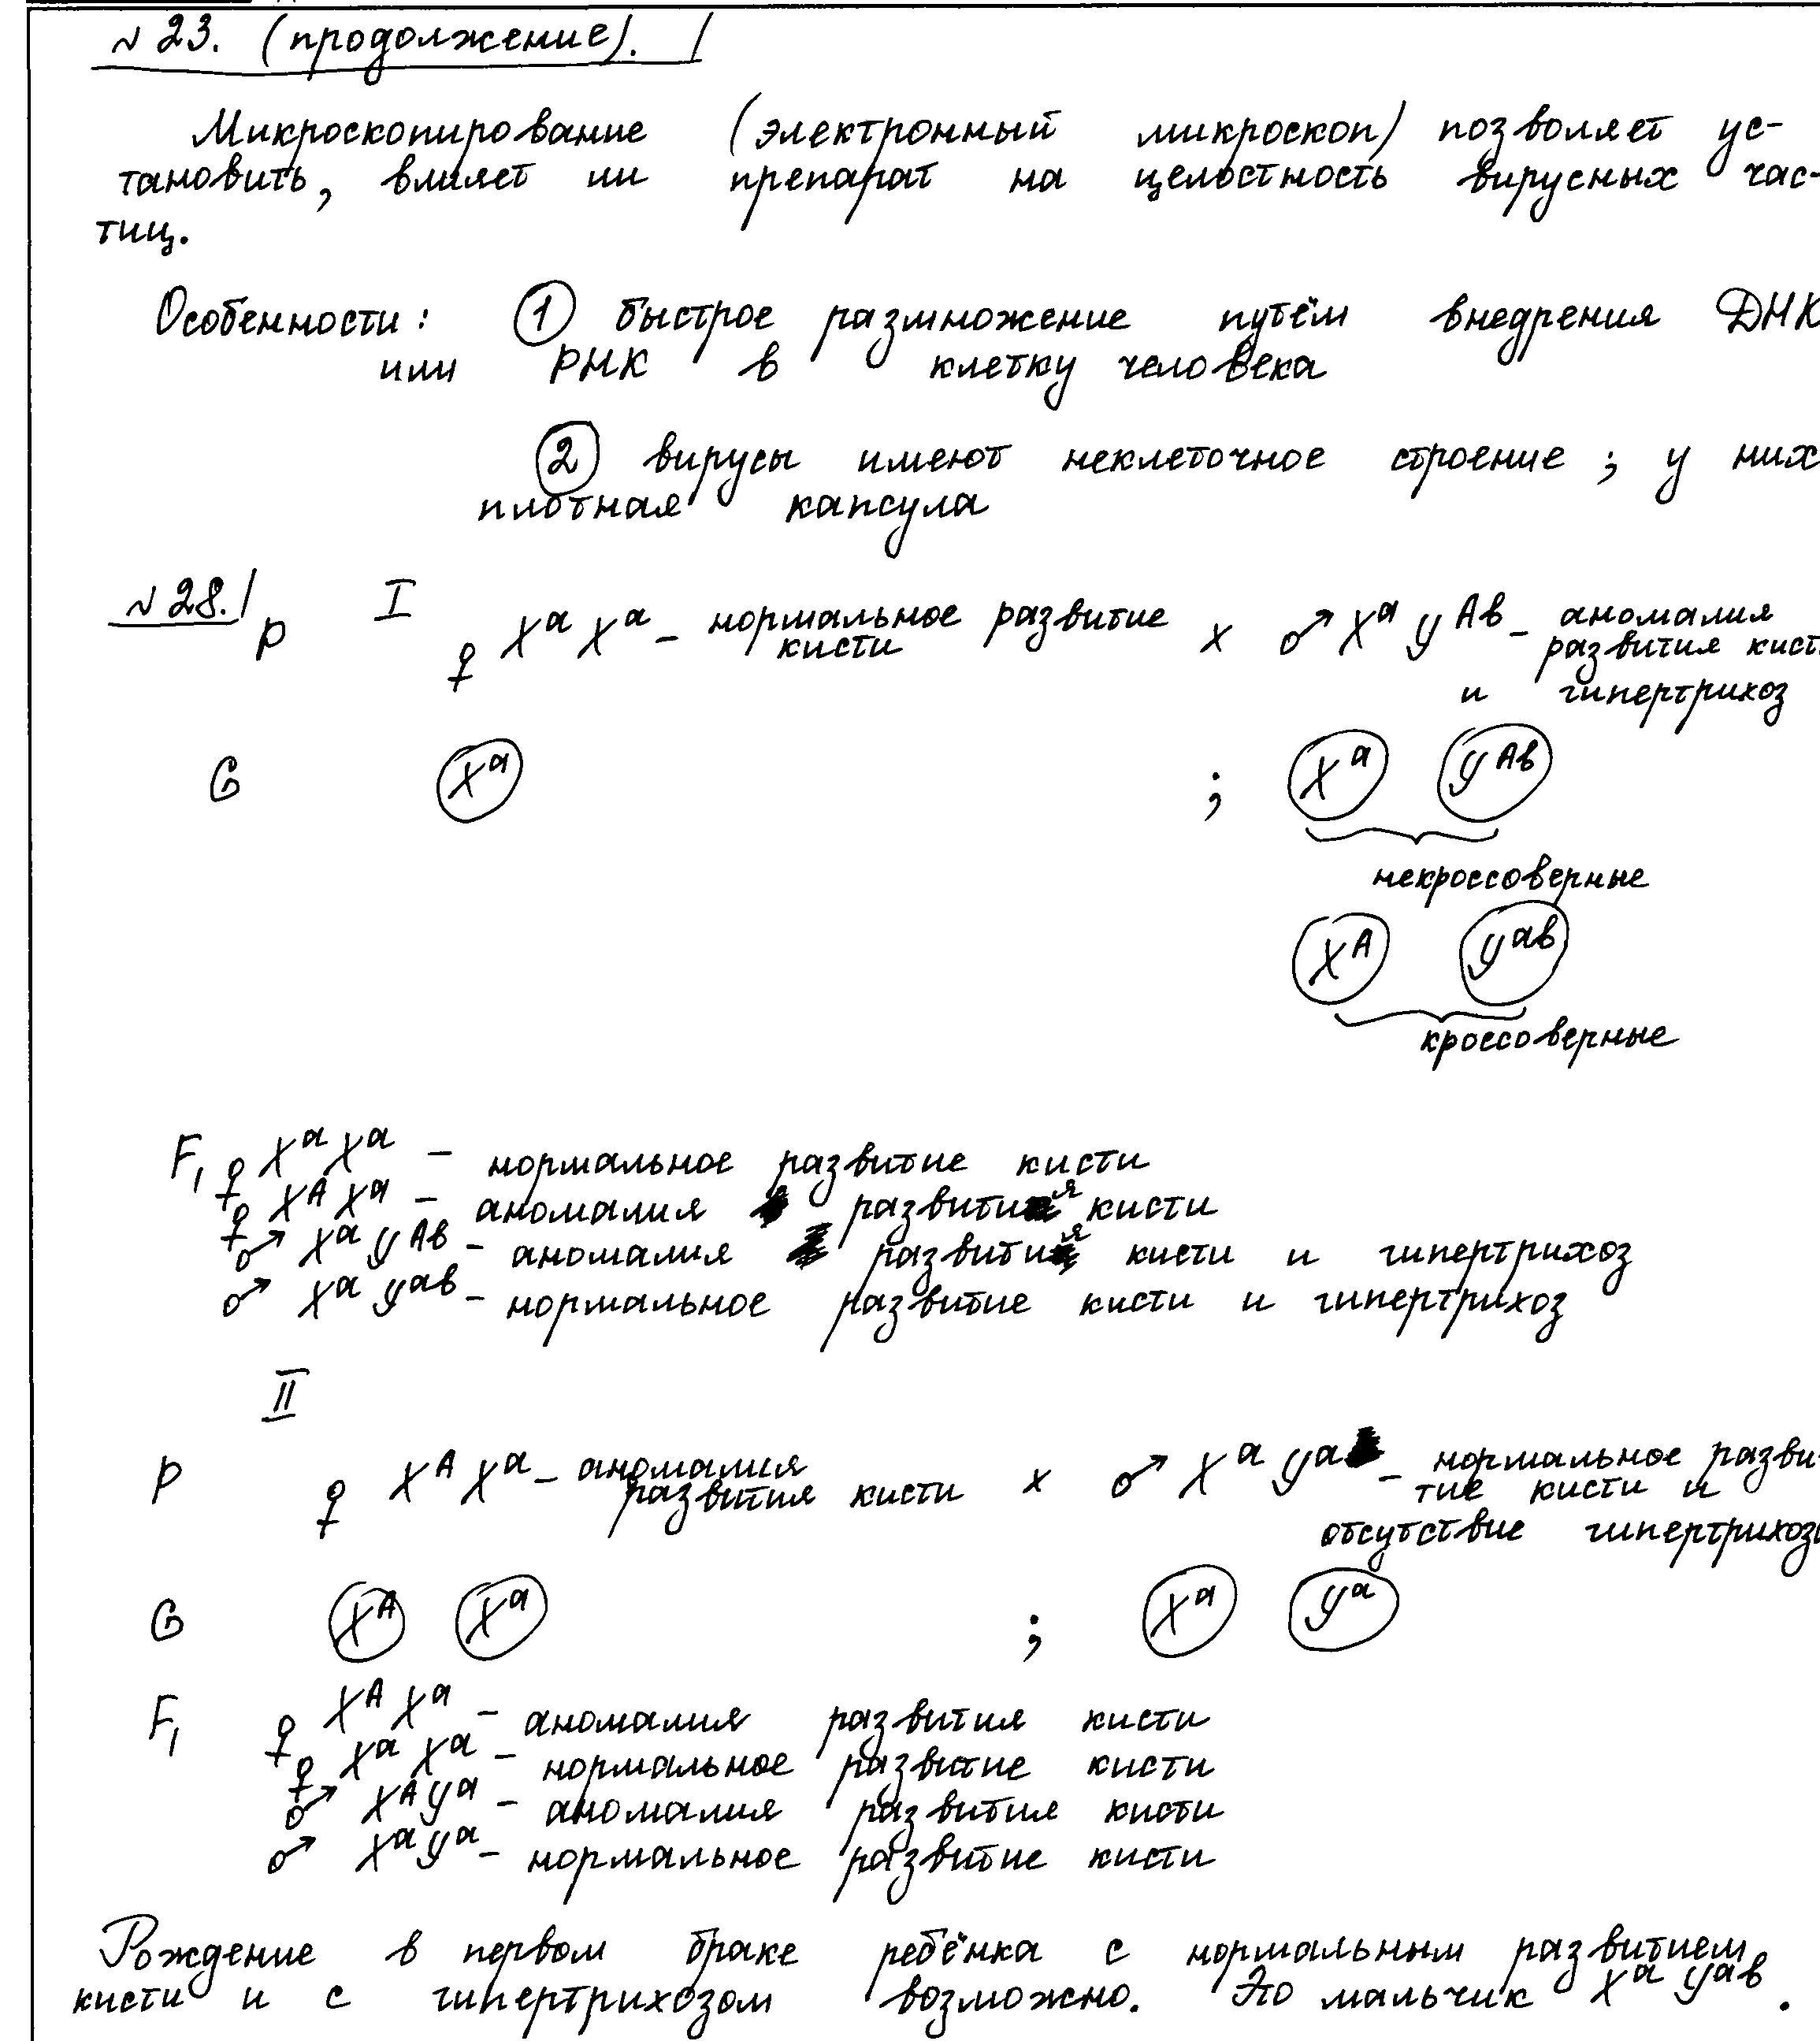 № 23. (продолжение).
Микроскопирование (электронный микроскоп) позволяет ус-
тановить, влияет ли препарат на целостность вирусных час-
тиц.
Особенности: ① быстрое размножение путём внедрения ДНК
или РНК в клетку человека
② вирусы имеют неклеточное строение; у них
плотная капсула
№ 28. I
P ♀ XᵃXᵃ – нормальное развитие кисти x ♂ XᵃYᴬᵇ – аномалия развития кисти
и гипертрихоз
G Xᵃ ; Xᵃ Yᴬᵇ
некроссоверные
Xᴬ Yᵃᵇ
кроссоверные
F₁ ♀ XᵃXᵃ – нормальное развитие кисти
♀ XᴬXᵃ – аномалия развития кисти
♂ XᵃYᴬᵇ – аномалия развития кисти и гипертрихоз
♂ XᵃYᵃᵇ – нормальное развитие кисти и гипертрихоз
II
P ♀ XᴬXᵃ – аномалия развития кисти x ♂ XᵃYᵃ – нормальное разви-
тие кисти и
отсутствие гипертрихоза
G Xᴬ Xᵃ ; Xᵃ Yᵃ
F₁ ♀ XᴬXᵃ – аномалия развития кисти
♀ XᵃXᵃ – нормальное развитие кисти
♂ XᴬYᵃ – аномалия развития кисти
♂ XᵃYᵃ – нормальное развитие кисти
Рождение в первом браке ребёнка с нормальным развитием
кисти и с гипертрихозом возможно. Это мальчик XᵃYᵃᵇ.